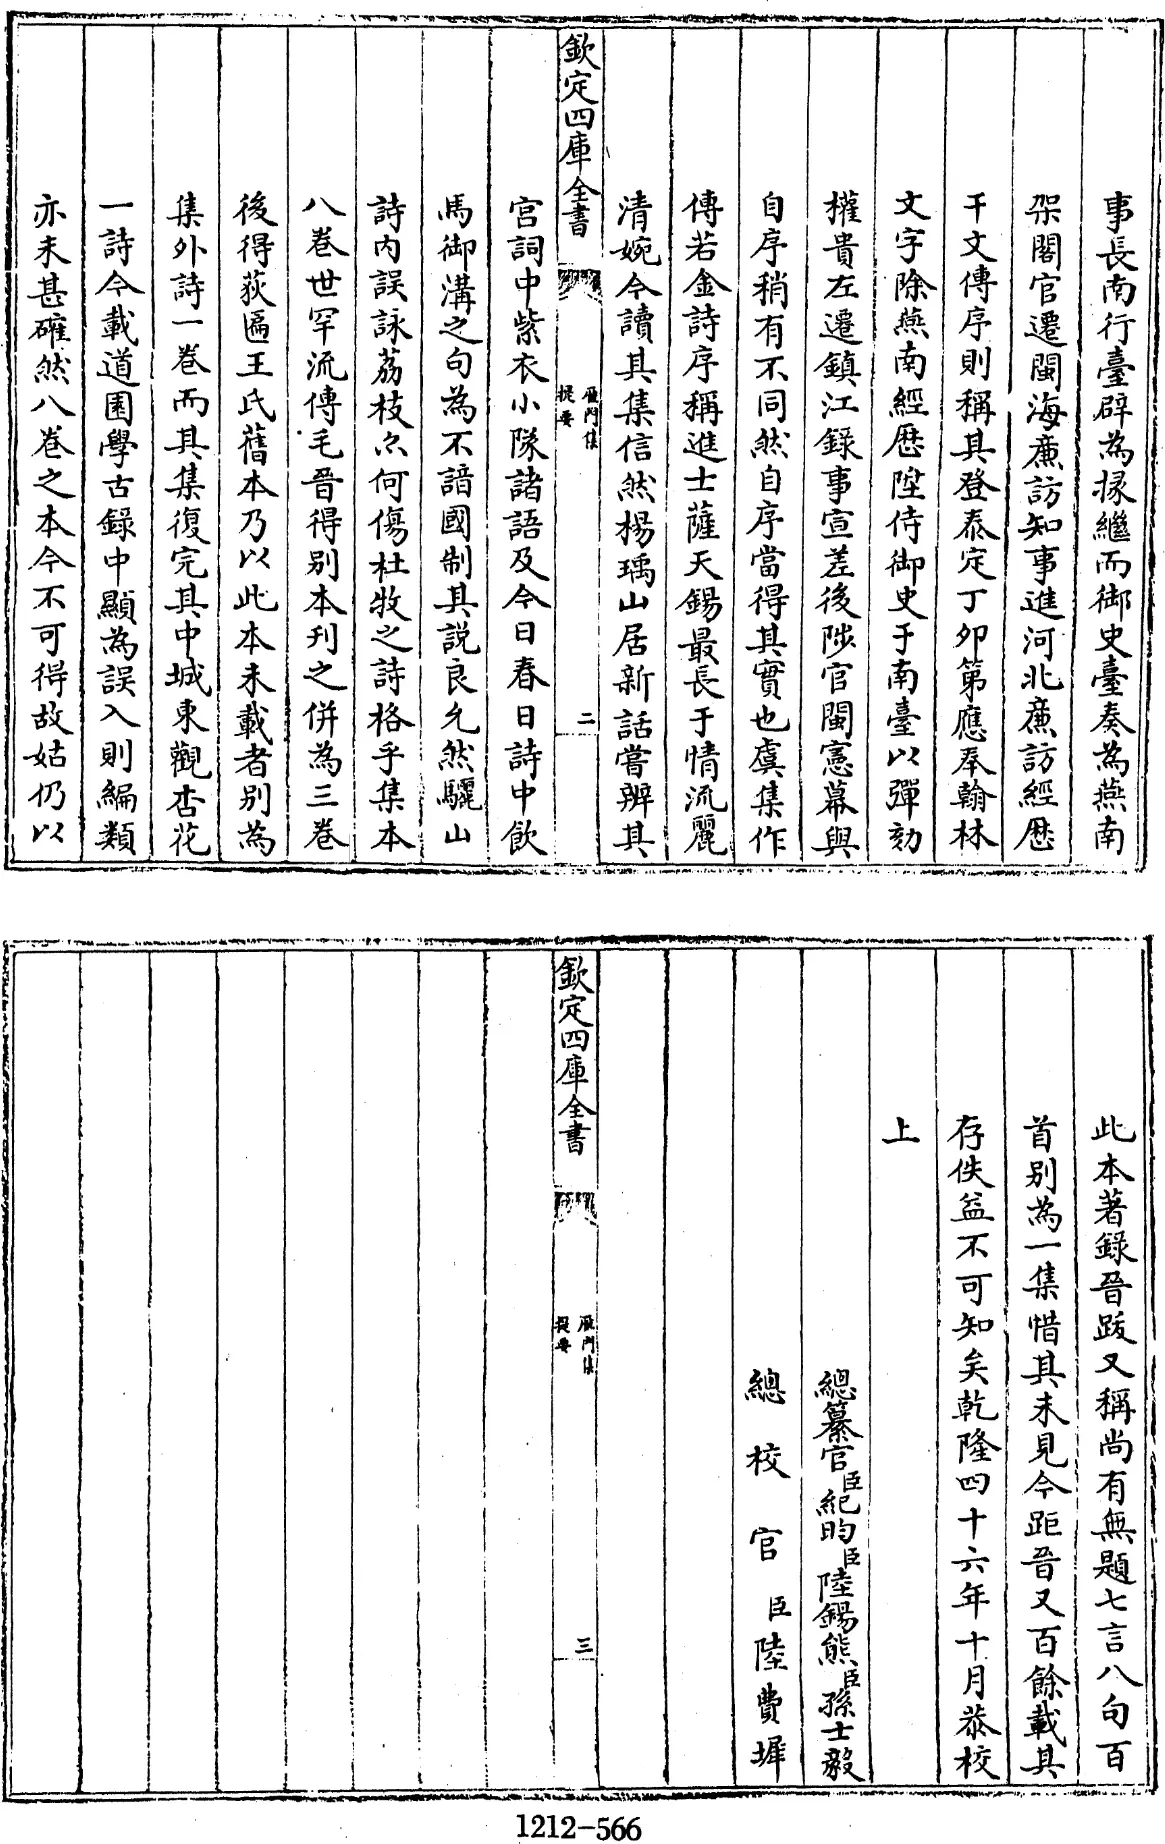 事長南行臺辟為掾繼而御史臺奏為燕南
架閣官遷閩海廉訪知事進河北廉訪經歷
干文傳序則稱其登泰定丁卯第應奉翰林
文字除燕南經歷陞侍御史于南臺以彈劾
權貴左遷鎮江錄事宣差後陟官閩憲幕與
自序稍有不同然自序當得其實也虞集作
傅若金詩序稱進士薩天錫最長于情流麗
清婉今讀其集信然楊瑀山居新話嘗辨其
欽定四庫全書
雁門集
提要
二
宮詞中紫衣小隊諸語及今日春日詩中飲
馬御溝之句為不諳國制其説良允然驪山
詩內誤詠荔枝亦何傷杜牧之詩格乎集本
八卷世罕流傳毛晉得別本刋之併為三卷
後得荻匾王氏舊本乃以此本未載者別為
集外詩一卷而其集復完其中城東觀杏花
一詩今載道園學古錄中顯為誤入則編類
亦未甚確然八卷之本今不可得故姑仍以
此本著錄晉跋又稱尚有無題七言八句百
首別為一集惜其未見今距晉又百餘載其
存佚益不可知矣乾隆四十六年十月恭校
上
總纂官臣紀昀臣陸錫熊臣孫士毅
總校官臣陸費墀
欽定四庫全書
雁門集
提要
三
1212-566